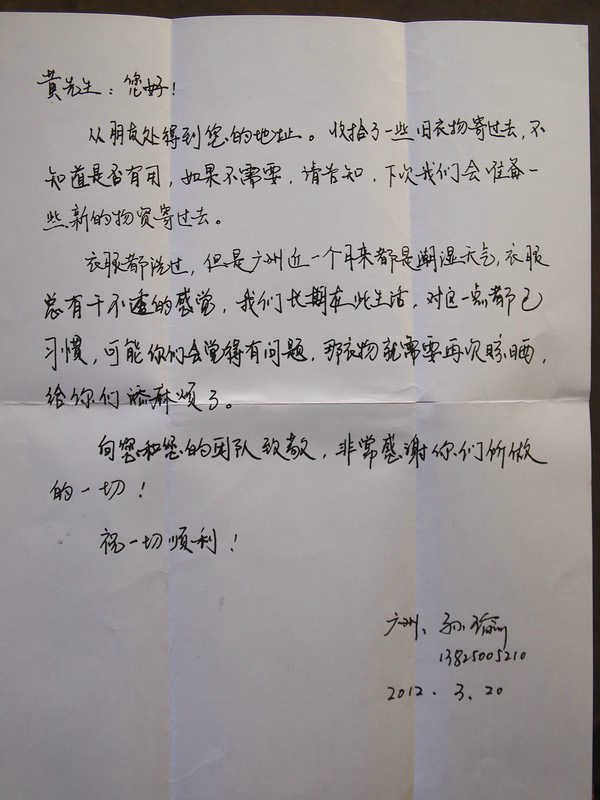 黄先生：您好！
从朋友处得到您的地址。收拾了一些旧衣物寄过去，不
知道是否有用，如果不需要，请告知，下次我们会准备一
些新的物资寄过去。
衣服都洗过，但是广州近一个月来都是潮湿天气，衣服
总有干不透的感觉，我们长期在此生活，对这一点都已
习惯，可能你们会觉得有问题，那衣物就需要再次晾晒，
给你们添麻烦了。
向您和您的团队致敬，非常感谢你们所做
的一切！
祝一切顺利！
广州、孙瑜
13825005210
2012.3.20